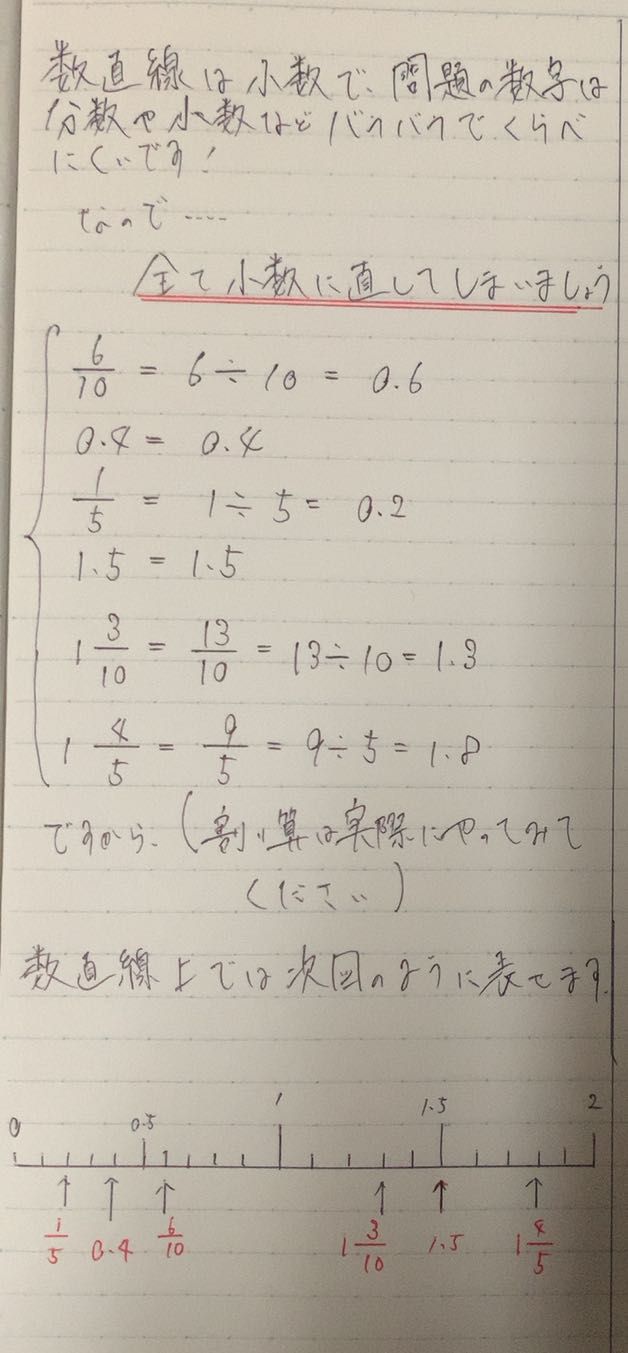 数直線は小数で、問題の数字は
分数や小数などバラバラでくらべ
にくいです!
なので····
全て小数に直してしまいましょう
6/10 = 6÷10 = 0.6
0.4 = 0.4
1/5 = 1÷5 = 0.2
1.5 = 1.5
1 3/10 = 13/10 = 13÷10 = 1.3
1 4/5 = 9/5 = 9÷5 = 1.8
ですから、(割り算は実際にやってみて
ください)
数直線上では次図のように表せます.
0 0.5 1 1.5 2
1/5 0.4 6/10 1 3/10 1.5 1 4/5